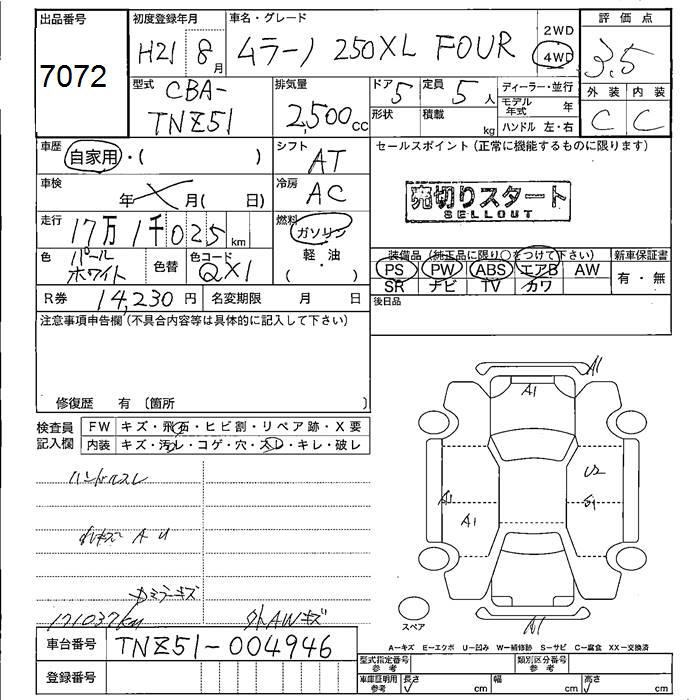 出品番号 初度登録年月 車名・グレード 2WD 評価点
7072 H21 8月 ムラーノ 250XL FOUR 4WD 3.5
型式 排気量 ドア 定員 ディーラー・並行 外装 内装
CBA-TNZ51 2,500cc 5 5人 モデル年式 年 C C
形状 積載 kg ハンドル 左・右
車歴 自家用・( ) シフト AT セールスポイント(正常に機能するものに限ります)
車検 年 月( 日) 冷房 AC 売切りスタート
SELLOUT
走行 17万1千025km 燃料 ガソリン
軽・油
( )
色 パールホワイト 色替 色コード QX1
装備品(純正品に限り○をつけて下さい) 新車保証書
PS PW ABS エアB AW 有・無
SR ナビ TV カワ
R券 14,230円 名変期限 月 日 後日品
注意事項申告欄(不具合内容等は具体的に記入して下さい)
修復歴 有 〔箇所 〕
検査員記入欄 FW キズ・飛石・ヒビ割・リペア跡・X要
内装 キズ・汚レ・コゲ・穴・スレ・キレ・破レ
ハンドルスレ
カミラーキズ
171037km 外AWキズ
A1
A1
U2
A1 S1
A1
A1
スペア
A−キズ E−エクボ U−凹み W−補修跡 S−サビ C−腐食 XX−交換済
車台番号 TNZ51-004946
登録番号
型式指定番号参考 類別区分番号参考
車庫証明用参考 長さ cm 幅 cm 高さ cm